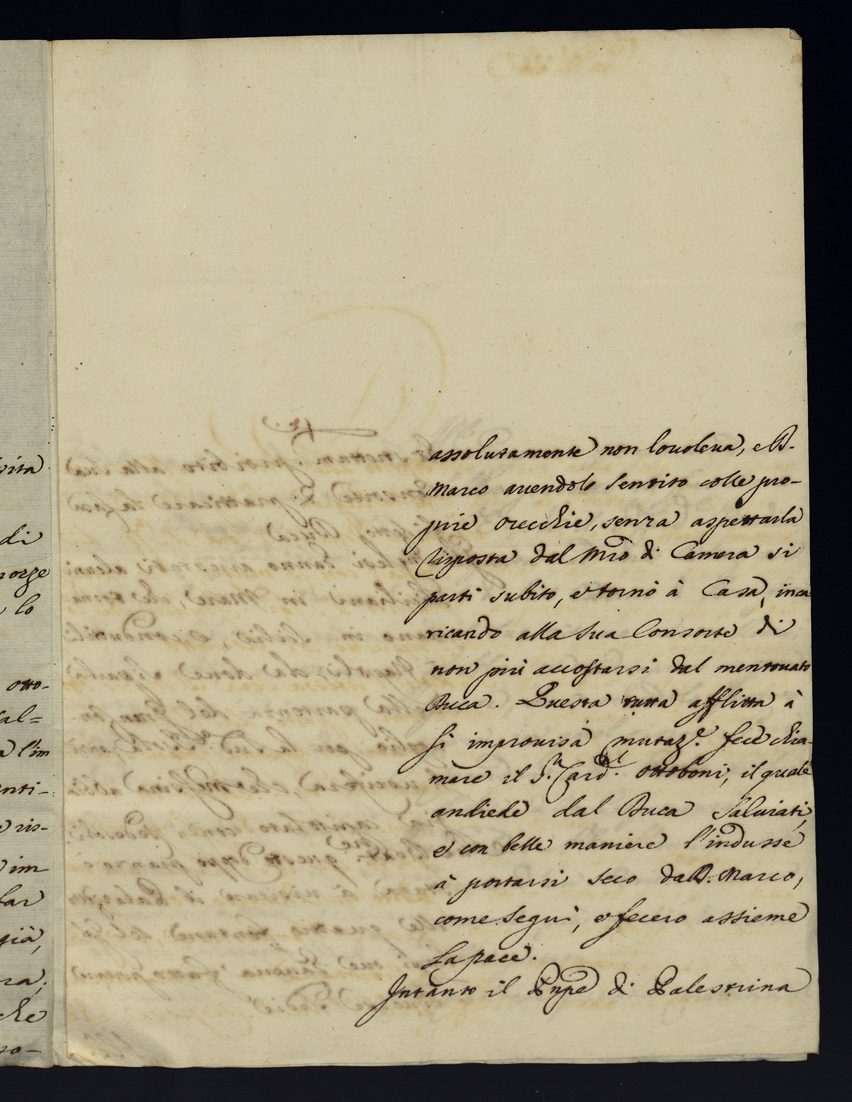 assolutamente non lo voleva, e D.
Marco avendolo sentito colle pro-
prie orecchie, senza aspettar la
risposta dal Mro di Camera si
partì subito, e tornò à Casa, inca
ricando alla sua Consorte di
non più accostarsi dal mentovato
Duca. Questa tutta afflitta à
sì improvisa mutaz.e fece chia-
mare il S.r Card.l Ottoboni, il quale
andiede dal Duca Salviati,
e con belle maniere l'indusse
à portarsi seco da D. Marco,
come seguì, e fecero assieme
la pace.
Intanto il Pnpe di Palestrina
vita
di
lo
otto-
al=
a l'im
enti-
e ris-
im
far
già,
ra;
che
so-